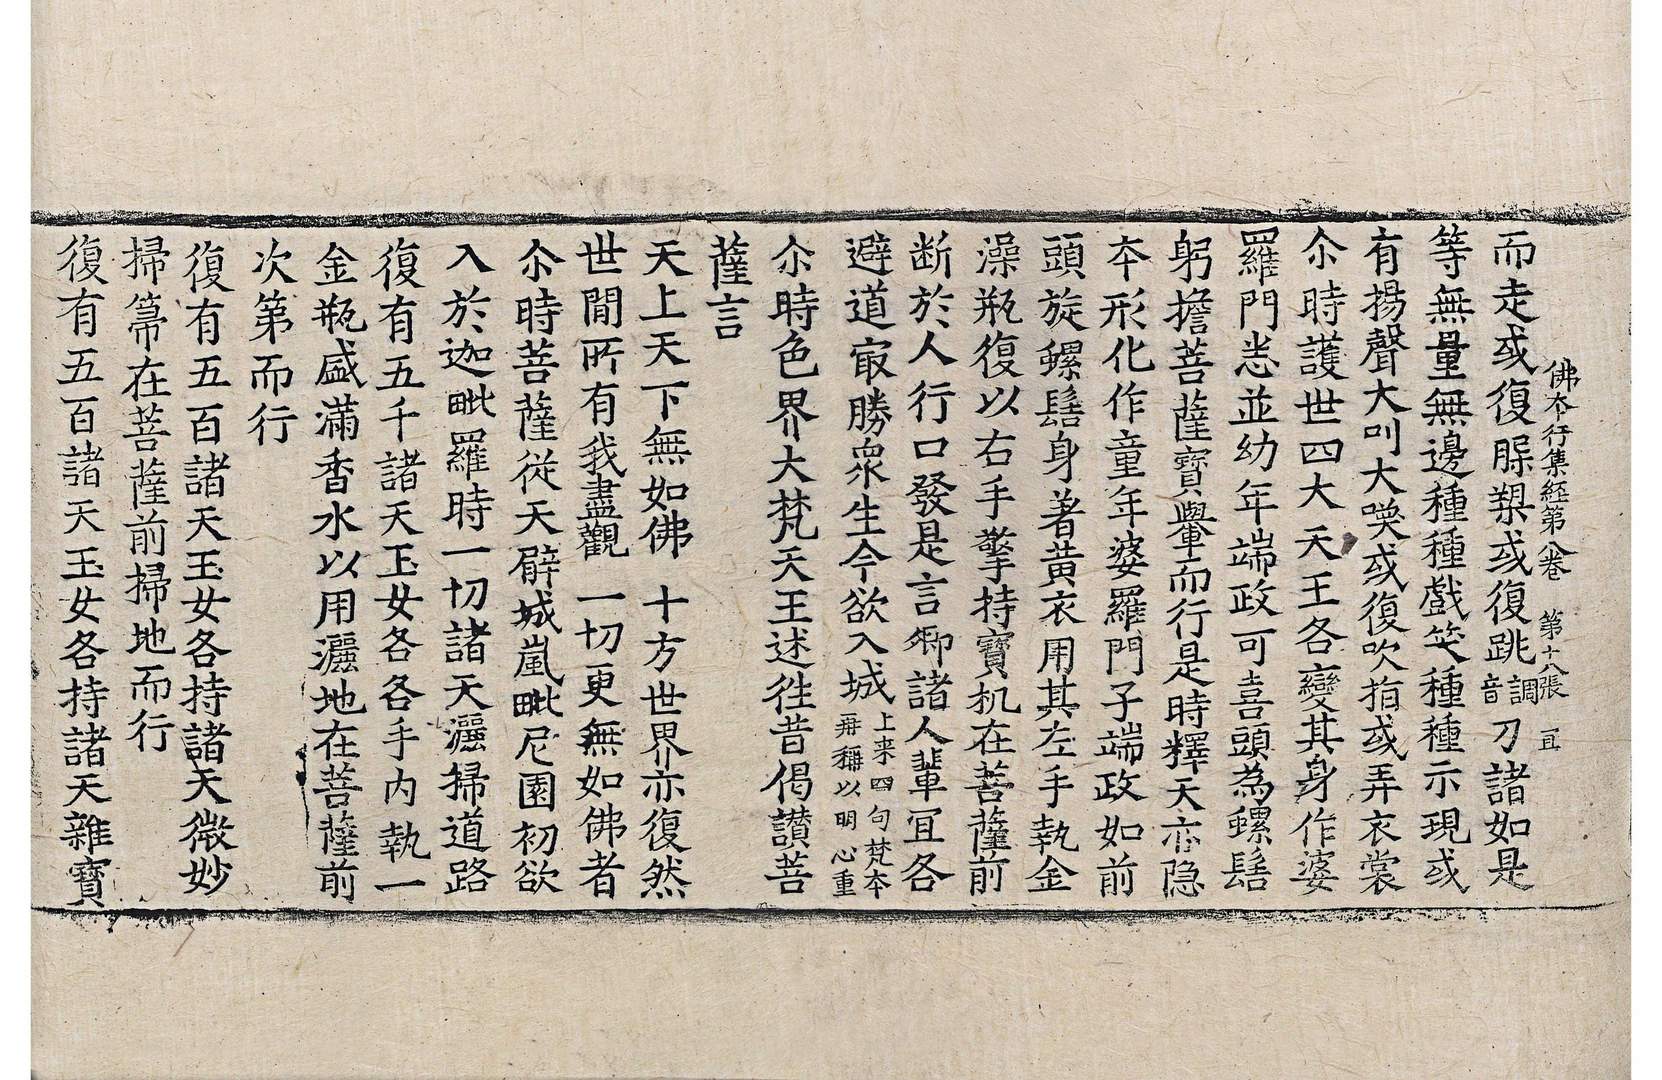 佛本行集経第八卷　第十八張　宜
而走或復䐗槊或復跳調音刀諸如是
等無量無邊種種戲笑種種示現或
有揚聲大叫大喚或復吹指或弄衣裳
尒時護世四大天王各變其身作婆
羅門悉並幼年端政可喜頭為螺髻
躬擔菩薩寶轝而行是時釋天亦隐
本形化作童年婆羅門子端政如前
頭旋螺髻身著黄衣用其左手執金
澡瓶復以右手擎持寶机在菩薩前
断於人行口發是言卿諸人輩宜各
避道㝡勝衆生今欲入城上来四句梵本再稱以明心重
尒時色界大梵天王述往昔偈讃菩
薩言
天上天下無如佛　十方世界亦復然
世間所有我盡觀　一切更無如佛者
尒時菩薩從天臂城嵐毗尼園初欲
入於迦毗羅時一切諸天灑掃道路
復有五千諸天玉女各各手内執一
金瓶盛滿香水以用灑地在菩薩前
次第而行
復有五百諸天玉女各持諸天微妙
掃箒在菩薩前掃地而行
復有五百諸天玉女各持諸天雜寶